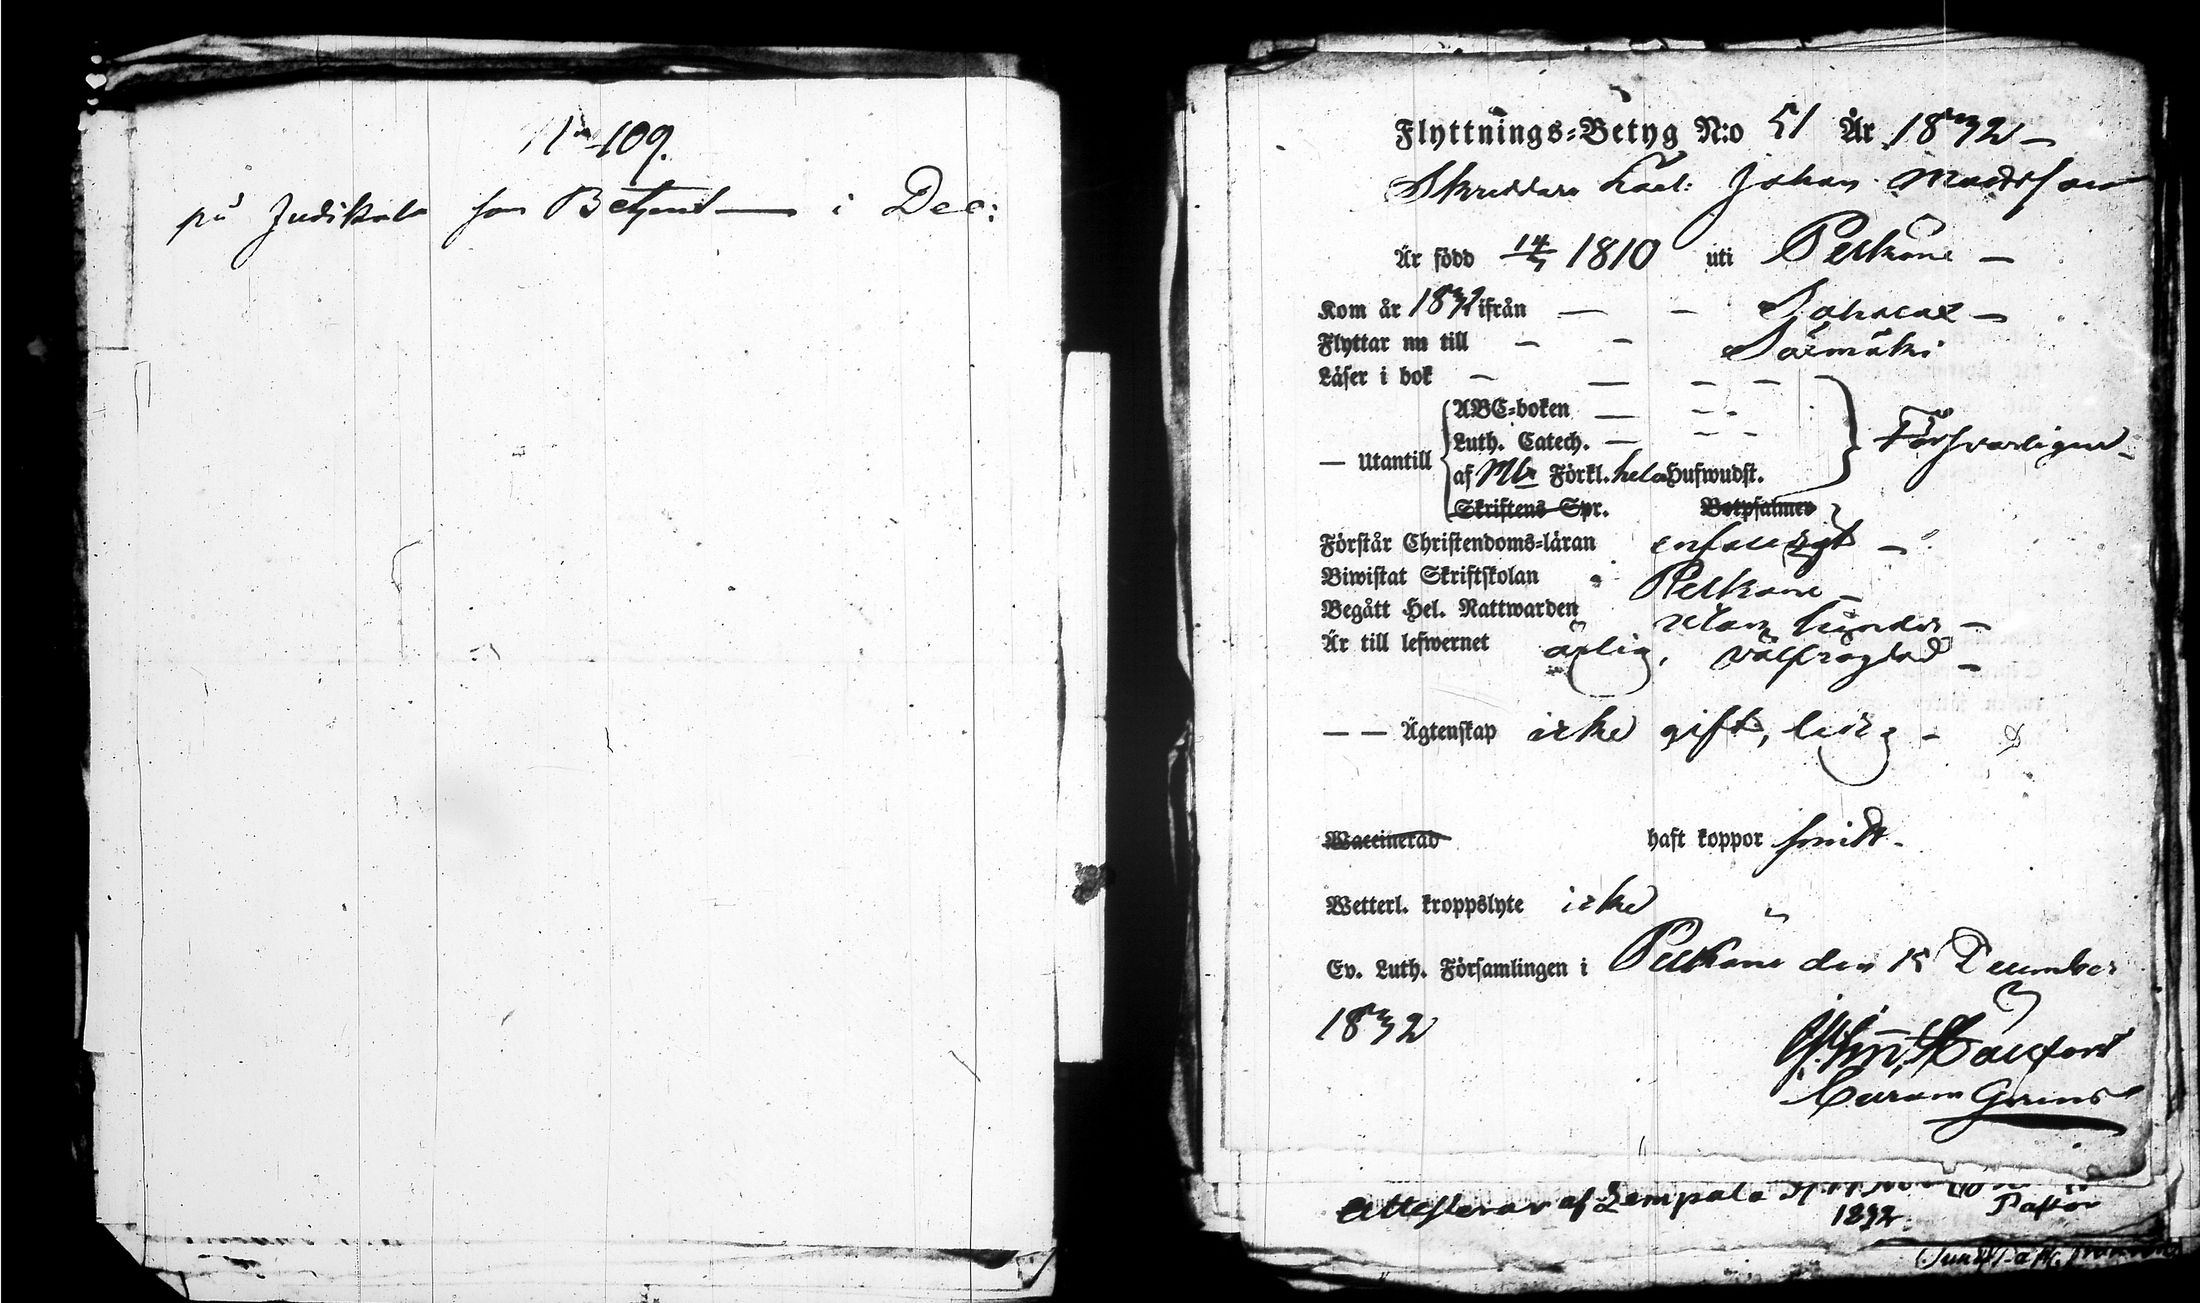 No 109.
på Judikale for Betyget i Dec:
Flyttnings-Betyg N:o 51 År 1832
Skreddare Johan Mattsson
Är född 14/7 1810 uti Pelkäne
Kom år 1832 ifrån Sahalax
Flyttar nu till Säxmäki
Läser i bok
ABC-boken
Luth. Catech. Försvarligen
Utantill
af Förkl. hela Hufwudst.
Skriftens Spr. Botpsalmer
Förstår Christendoms-läran enfaldigt
Biwistat Skriftskolan i Pelkäne
Begått Hel. Nattwarden utan hinder
Är till lefwernet ärlig, välfrägdad
Ägtenskap icke gift, ledig
Waccinerad haft koppor
Wetterl. kroppslyte icke
Ev. Luth. Församlingen i Pelkäne den 15 December
1832
Curam Gerens
Attesterar af Lempala
1832. Pastor